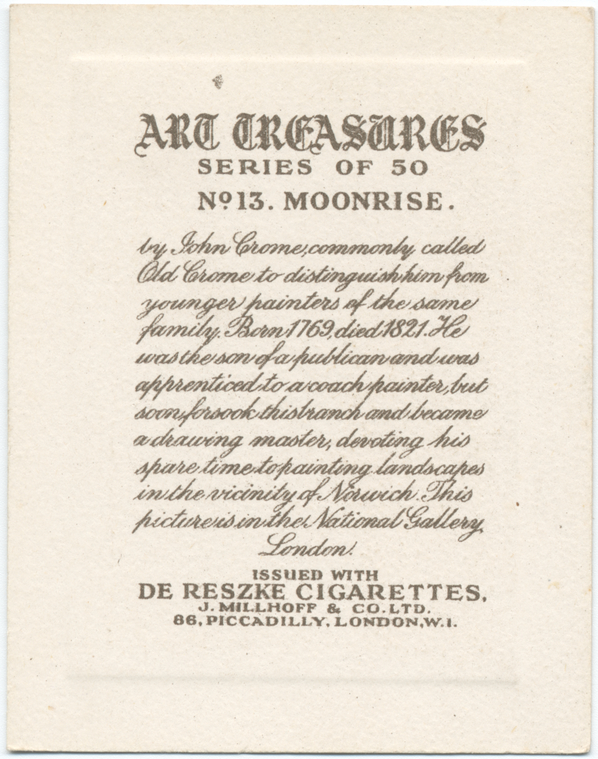 ART TREASURES
SERIES OF 50
Nº 13. MOONRISE.
by John Crome, commonly called
Old Crome to distinguish him from
younger painters of the same
family. Born 1769, died 1821. He
was the son of a publican and was
apprenticed to a coach painter, but
soon forsook this branch and became
a drawing master, devoting his
spare time to painting landscapes
in the vicinity of Norwich. This
picture is in the National Gallery,
London.
ISSUED WITH
DE RESZKE CIGARETTES,
J. MILLHOFF & CO. LTD.
86, PICCADILLY, LONDON, W.1.